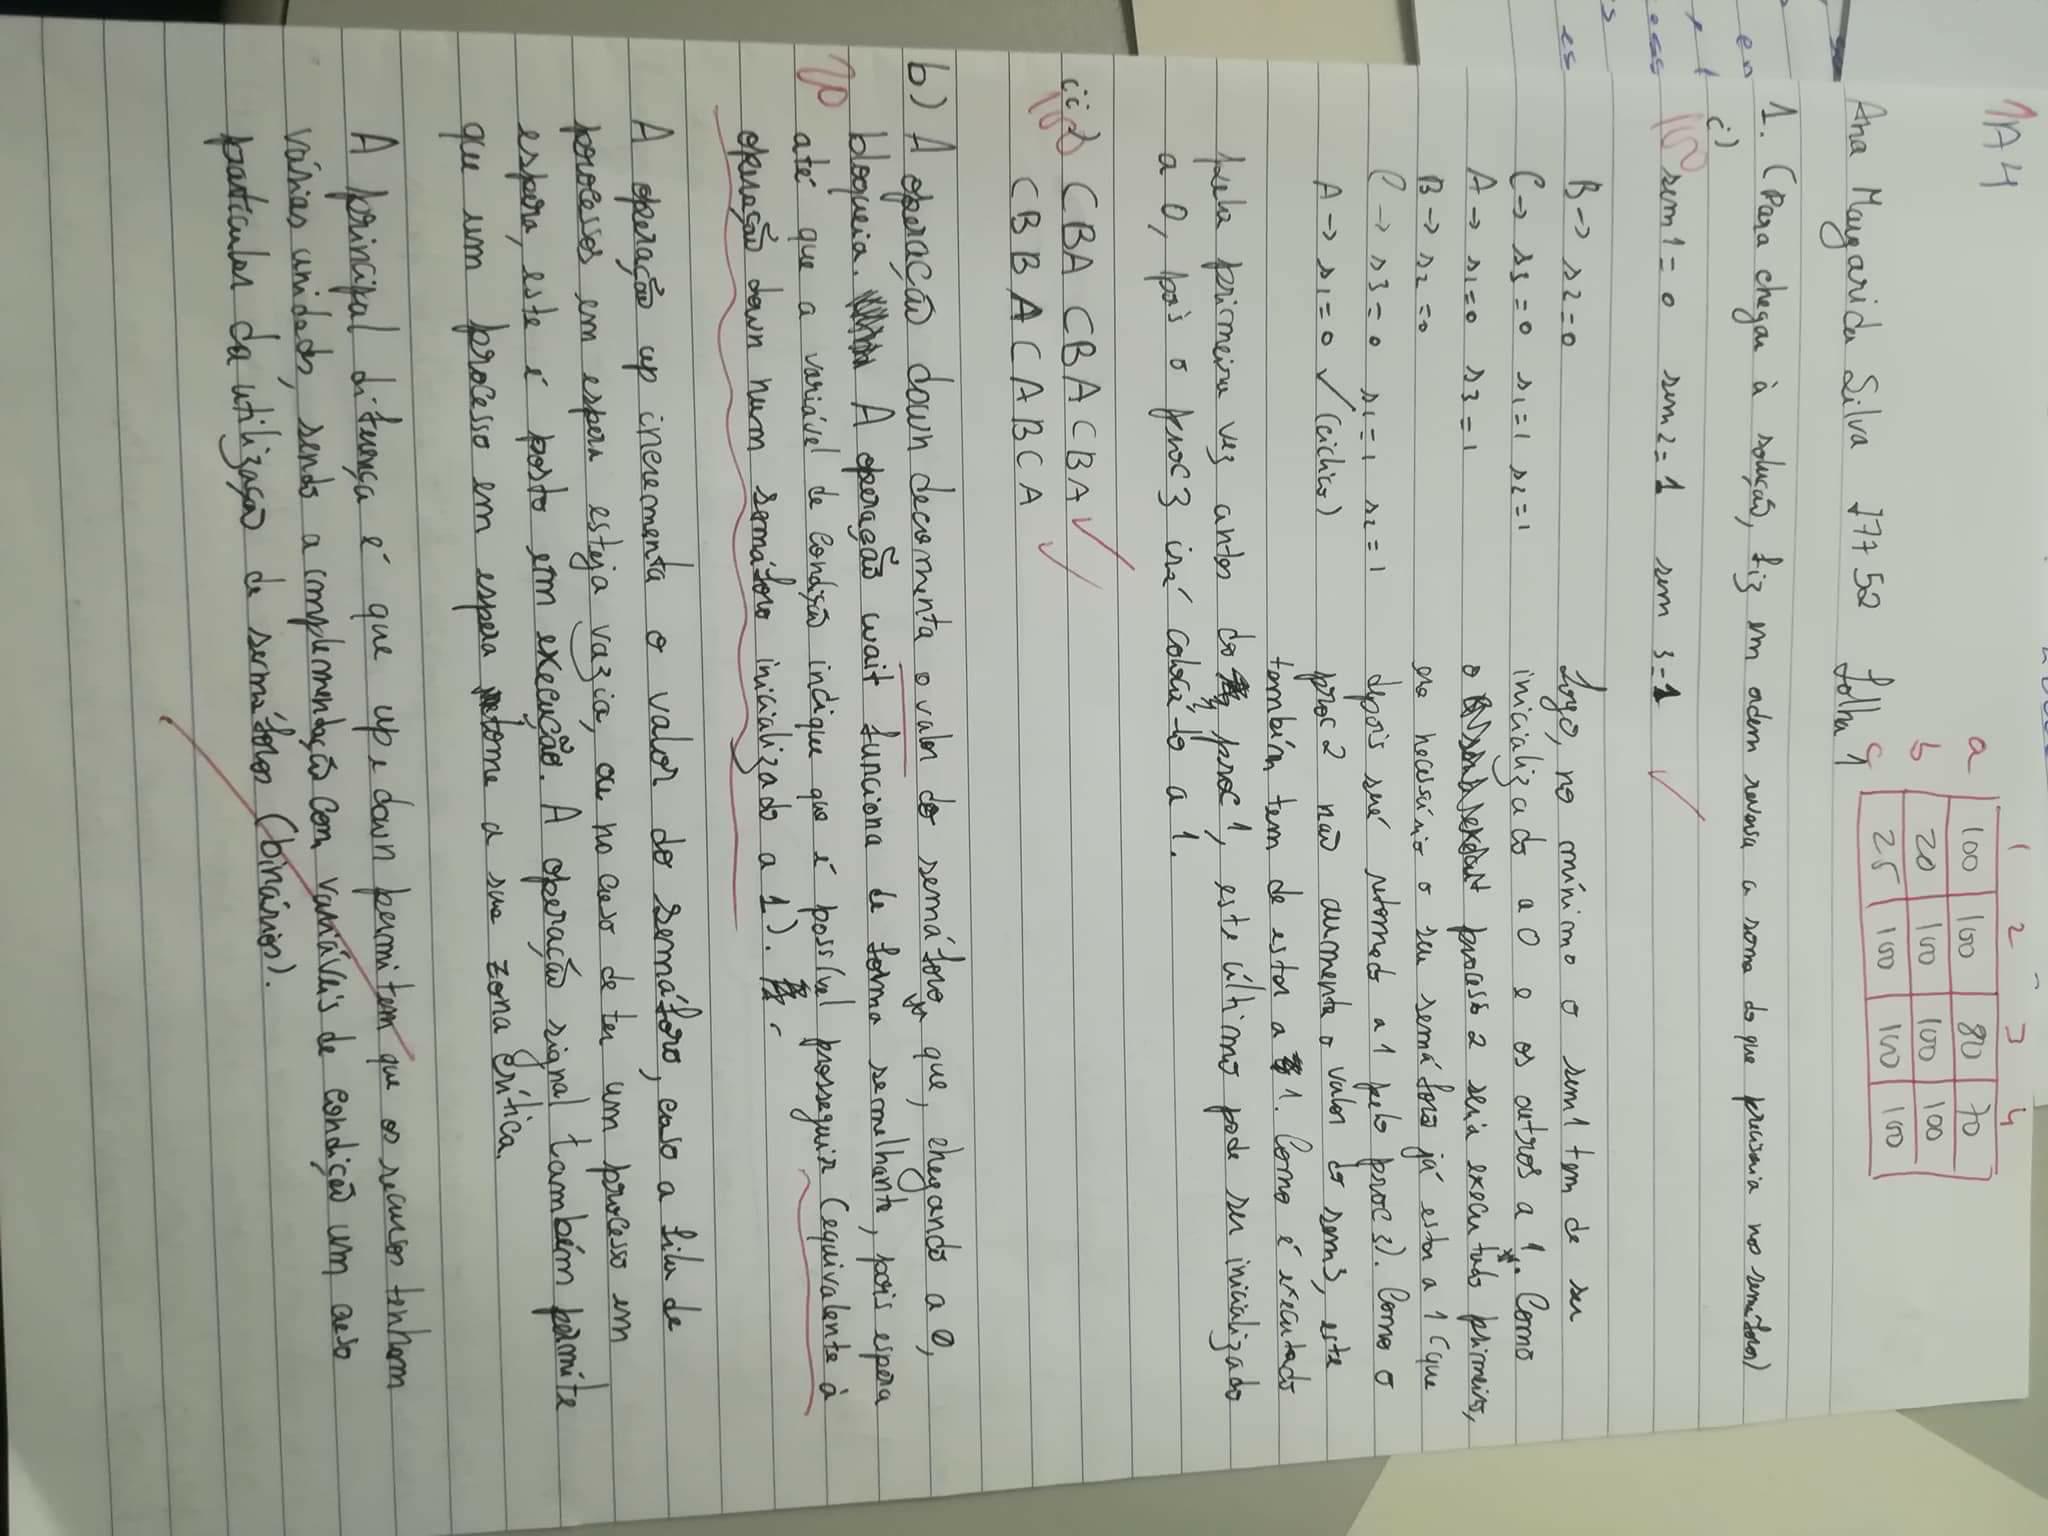 1A4
1 2 3 4
a 100 100 80 70
b 20 100 100 100
c 25 100 100 100
Ana Margarida Silva J7752 Folha 1
1. (Para chegar à solução, fiz em ordem reversa a soma do que precisaria nos semáforos)
i)
100 sem1 = 0 sem2 = 1 sem 3 = 1 ✓
B → s2 = 0
C → s3 = 0 s1 = 1 s2 = 1
A → s1 = 0 s3 = 1
B → s2 = 0
C → s3 = 0 s1 = 1 s2 = 1
A → s1 = 0 ✓ (cíclico)
Logo, no mínimo o sem1 tem de ser
inicializado a 0 e os outros a 1. Como
o processo 2 seria executado primeiro,
era necessário o seu semáforo já estar a 1 (que
depois será retomado a 1 pelo proc 3). Como o
proc 2 não aumenta o valor do sem3, este
também tem de estar a 1. Como é executado
pela primeira vez antes do proc 1, este último pode ser inicializado
a 0, pois o proc 3 irá colocá-lo a 1.
ii) 100 CBA CBA CBA ✓
CBBACABCA ✓
b) A operação down decrementa o valor do semáforo que, chegando a 0,
bloqueia. A operação wait funciona de forma semelhante, pois espera
20 até que a variável de condição indique que é possível prosseguir (equivalente à
operação down num semáforo inicializado a 1).
A operação up incrementa o valor do semáforo, caso a fila de
processos em espera esteja vazia, ou no caso de ter um processo em
espera, este é posto em execução. A operação signal também permite
que um processo em espera retome a sua zona crítica.
A principal diferença é que up e down permitem que os recursos tenham
várias unidades, sendo a implementação com variáveis de condição um caso
particular da utilização de semáforos (binários).